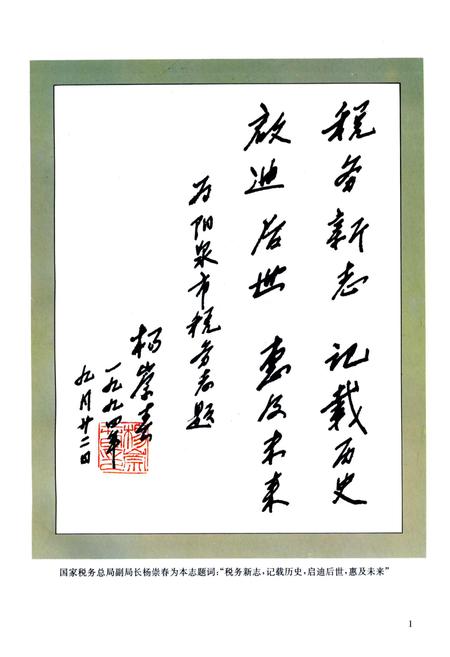 税务新志 记载历史
启迪后世 惠及未来
为阳泉市税务志题
杨崇春
一九九四年
九月廿二日
国家税务总局副局长杨崇春为本志题词:“税务新志,记载历史,启迪后世,惠及未来”
1